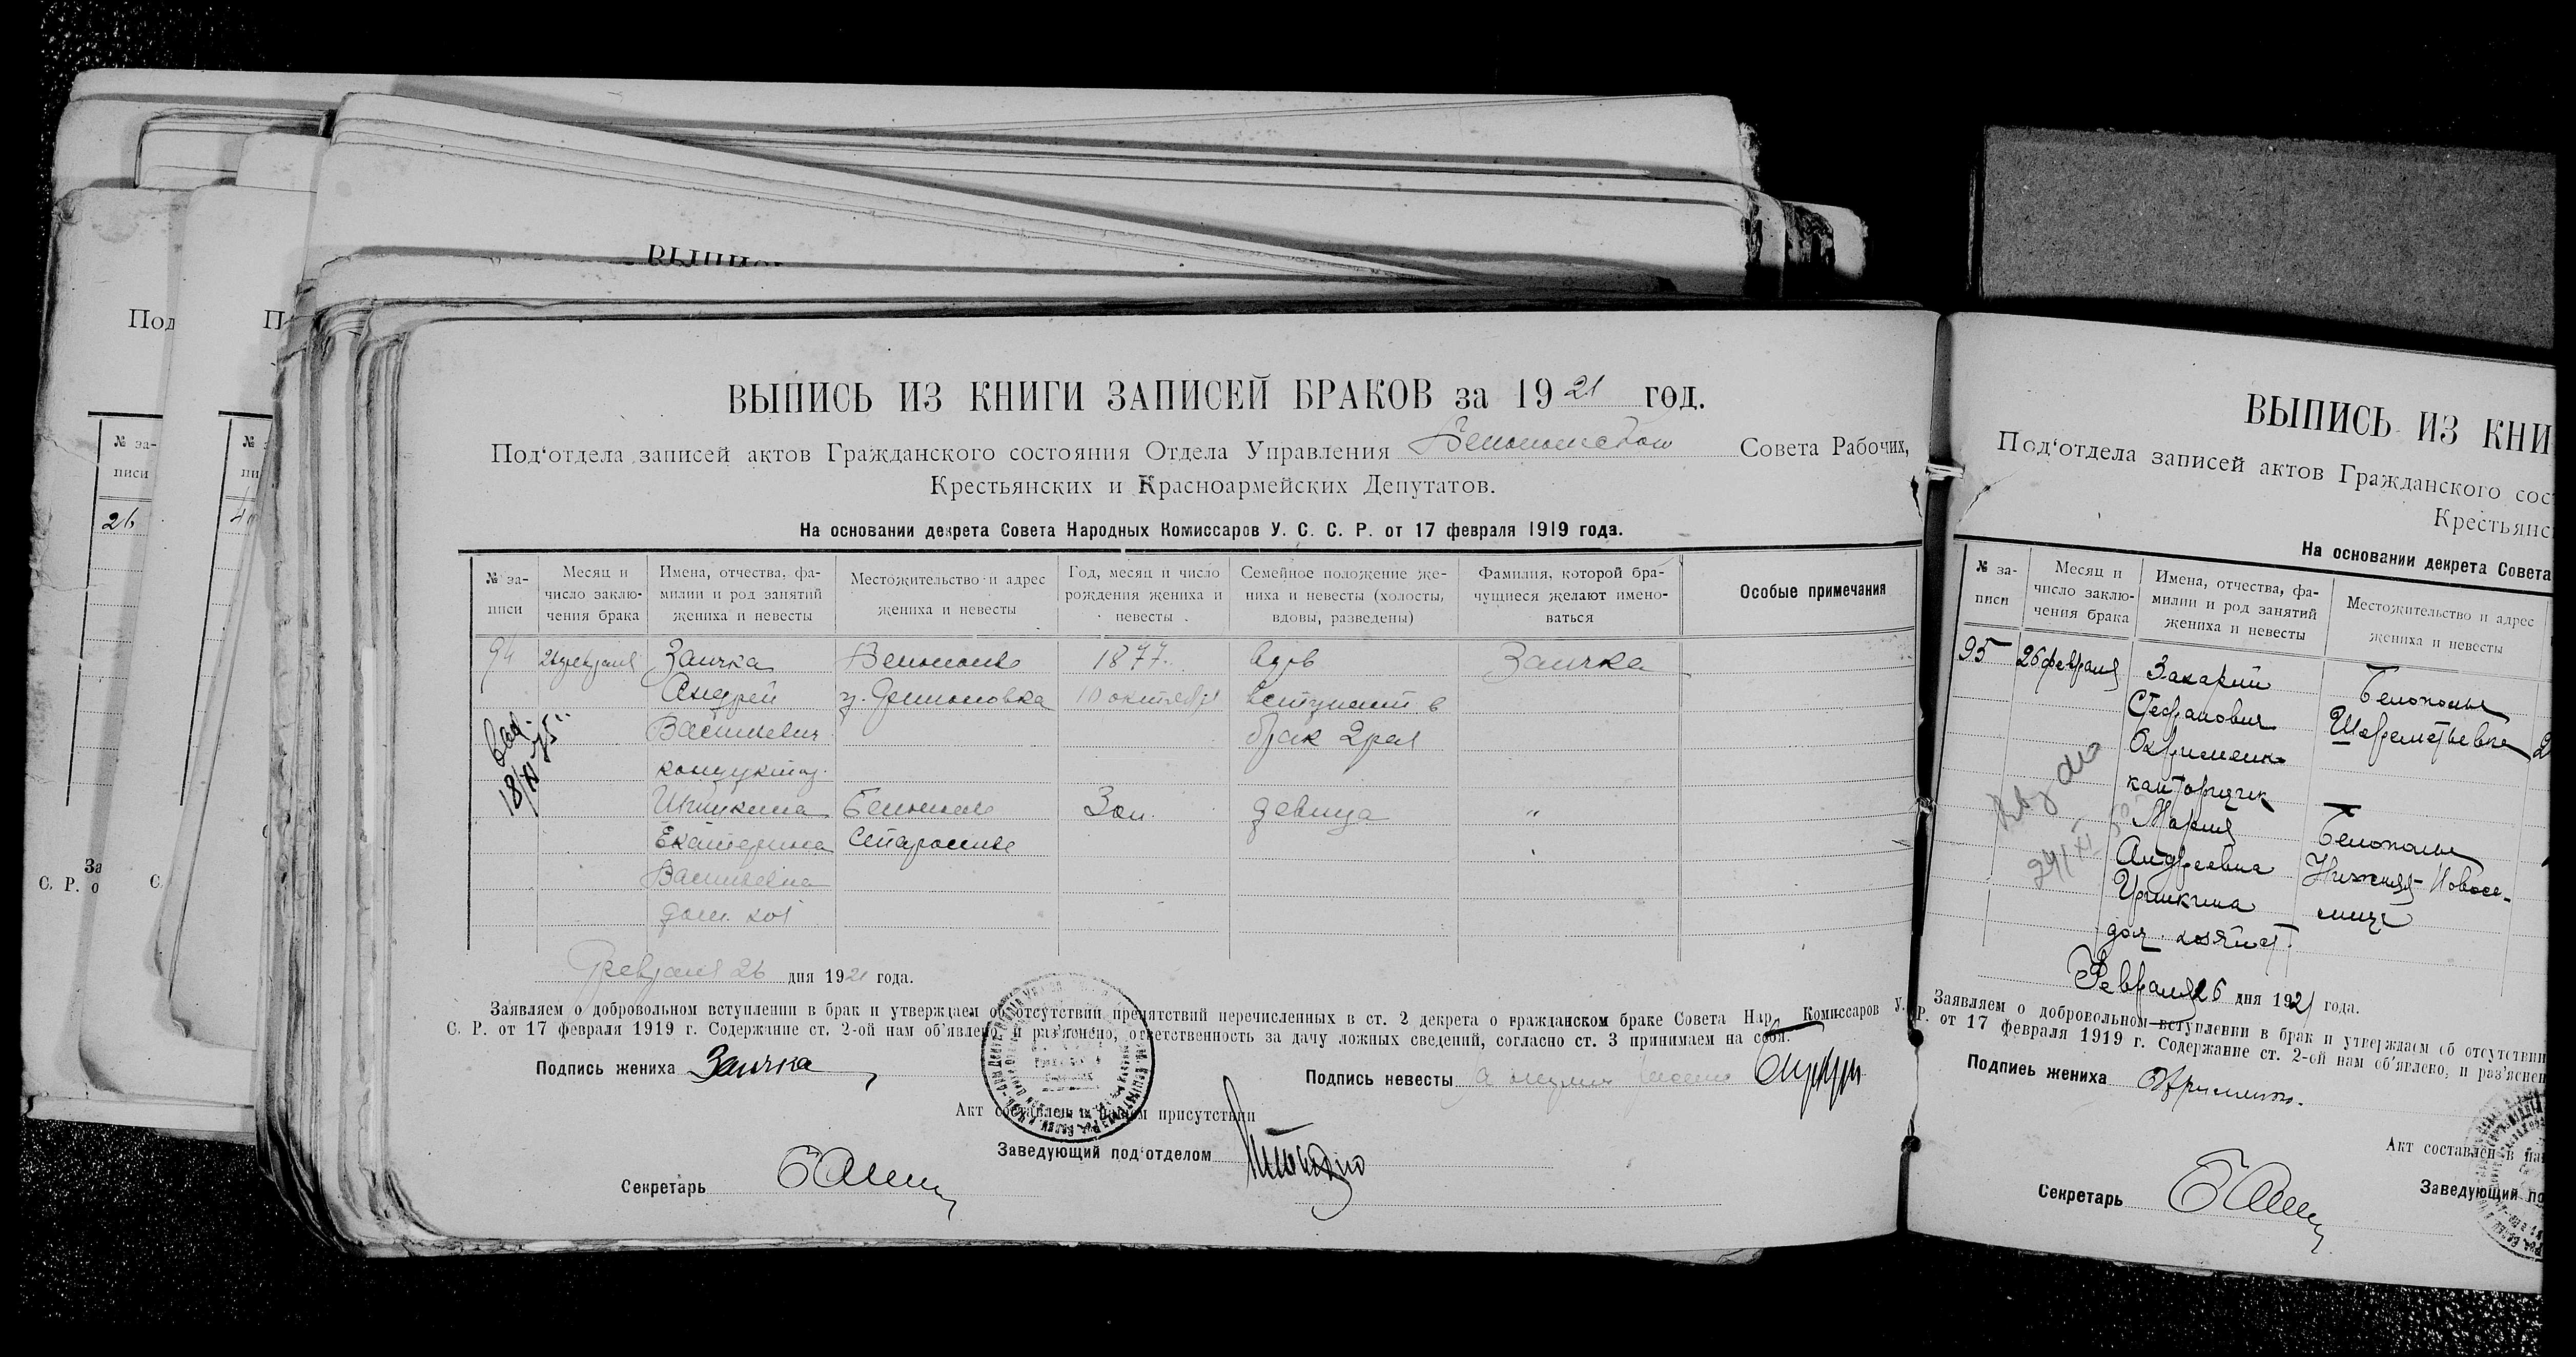 ВЫПИСЬ ИЗ КНИГИ ЗАПИСЕЙ БРАКОВ за 1921 год.
Под‘отдела записей актов Гражданского состояния Отдела Управления Совета Рабочих,
Крестьянских и Красноармейских Депутатов.
На основании декрета Совета Народных Комиссаров У. С. С. Р. от 17 февраля 1919 года.
№ за-
писи
Месяц и
число заклю-
чения брака
Имена, отчества, фа-
милии и род занятий
жениха и невесты
Местожительство и адрес
жениха и невесты
Год, месяц и число
рождения жениха и
невесты
Семейное положение же-
ниха и невесты (холосты,
вдовы, разведены)
Фамилия, которой бра-
чущиеся желают имено-
ваться
Особые примечания
94 26 февраля Заичка 1877. вдов Заичка
Андрей 10 октября вступает в
Васильевич брак 2 раз
Белополье девица "
Екатерина
Васильевна
дом. хоз
Февраля 26 дня 1921 года.
Заявляем о добровольном вступлении в брак и утверждаем об отсутствии препятствий перечисленных в ст. 2 декрета о гражданском браке Совета Нар. Комиссаров У.
С. Р. от 17 февраля 1919 г. Содержание ст. 2-ой нам об‘явлено, и раз‘яснено, ответственность за дачу ложных сведений, согласно ст. 3 принимаем на себя.
Подпись жениха Заичка
Подпись невесты
Акт составлен в нашем присутствии
Заведующий под‘отделом
Секретарь
ВЫПИСЬ ИЗ КНИ
Под‘отдела записей актов Гражданского сос
Крестьянс
На основании декрета Совета
№ за-
писи
Месяц и
число заклю-
чения брака
Имена, отчества, фа-
милии и род занятий
жениха и невесты
Местожительство и адрес
жениха и невесты
95 26 февраля Захарий Белополье
Стефанович
Охрименко
Мария Белополье
Андреевна Нижняя-Новосе-
лица
дом. хозяйст.
Февраля 26 дня 1921 года.
Заявляем о добровольном вступлении в брак и утверждаем об отсутствии
Р. от 17 февраля 1919 г. Содержание ст. 2-ой нам об‘явлено, и раз‘яснен
Подпись жениха Охрименко.
Акт составлен в на
Заведующий по
Секретарь
Под
№ за-
писи
26
С. Р. о